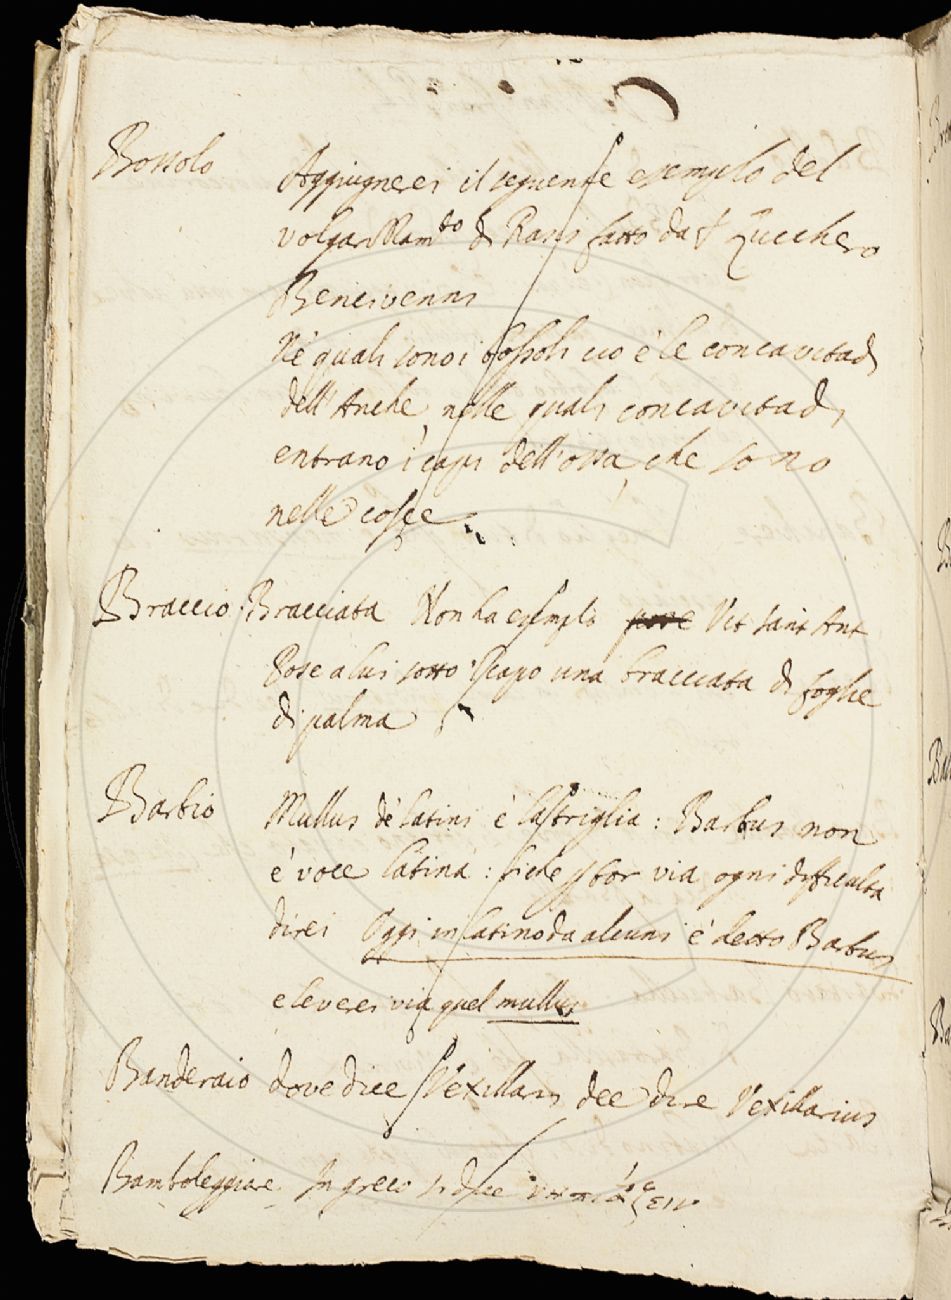 Bossolo Aggiugnerei il seguente esemplo del
volgarizzam.to di Rasis fatto da S Zucchero
Bencivenni
Ne' quali sono i bossoli cio è le concavitadi
dell'Anche, nelle quali concavitadi,
entrano i capi dell'ossa, che sono
nelle cosce
Braccio. Bracciata Non ha esemplo pose Vit Sant Ant
Pose a lui sotto 'l capo una bracciata di foglie
di palma
Barbio Mullus de' Latini è la triglia: Barbus non
è voce latina: siche p tor via ogni difficulta
direi Oggi in latino da alcuni è detto Barbus
e leverei via quel mullus
Banderaio dove dice Vexillaris dee dire Vexillarius
Bamboleggiare. In greco si dice νηπιάζειν